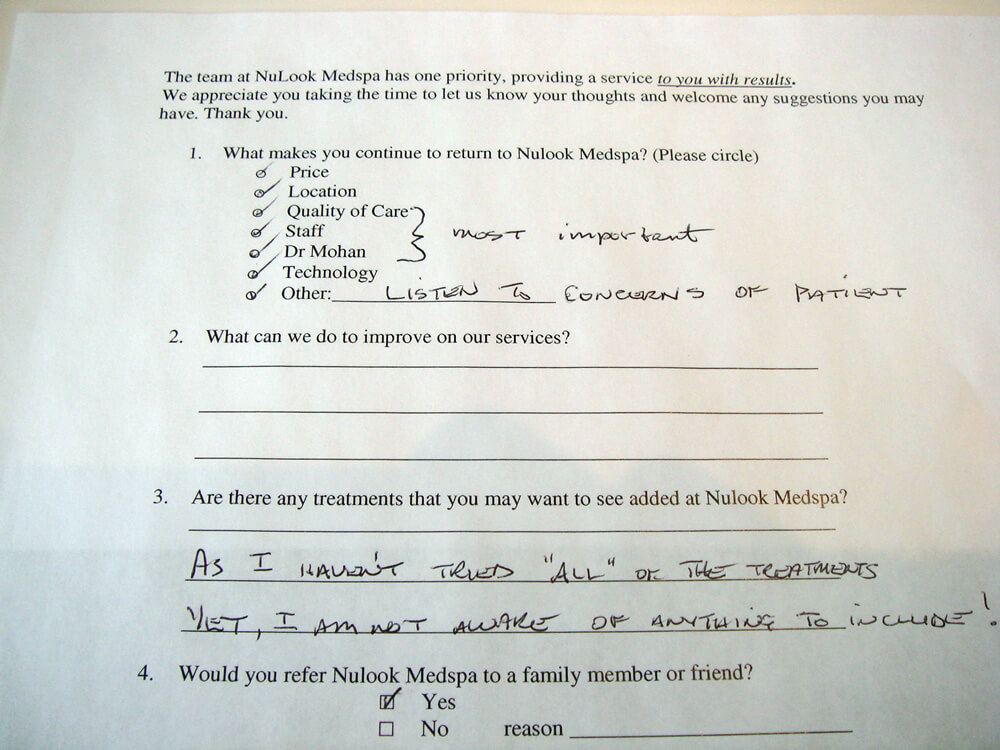 The team at NuLook Medspa has one priority, providing a service to you with results.
We appreciate you taking the time to let us know your thoughts and welcome any suggestions you may
have. Thank you.
1. What makes you continue to return to Nulook Medspa? (Please circle)
Price
Location
Quality of Care
Staff } most important
Dr Mohan
Technology
Other: LISTEN TO CONCERNS OF PATIENT
2. What can we do to improve on our services?
3. Are there any treatments that you may want to see added at Nulook Medspa?
AS I HAVEN'T TRIED "ALL" OF THE TREATMENTS
YET, I AM NOT AWARE OF ANYTHING TO INCLUDE!
4. Would you refer Nulook Medspa to a family member or friend?
Yes
No reason